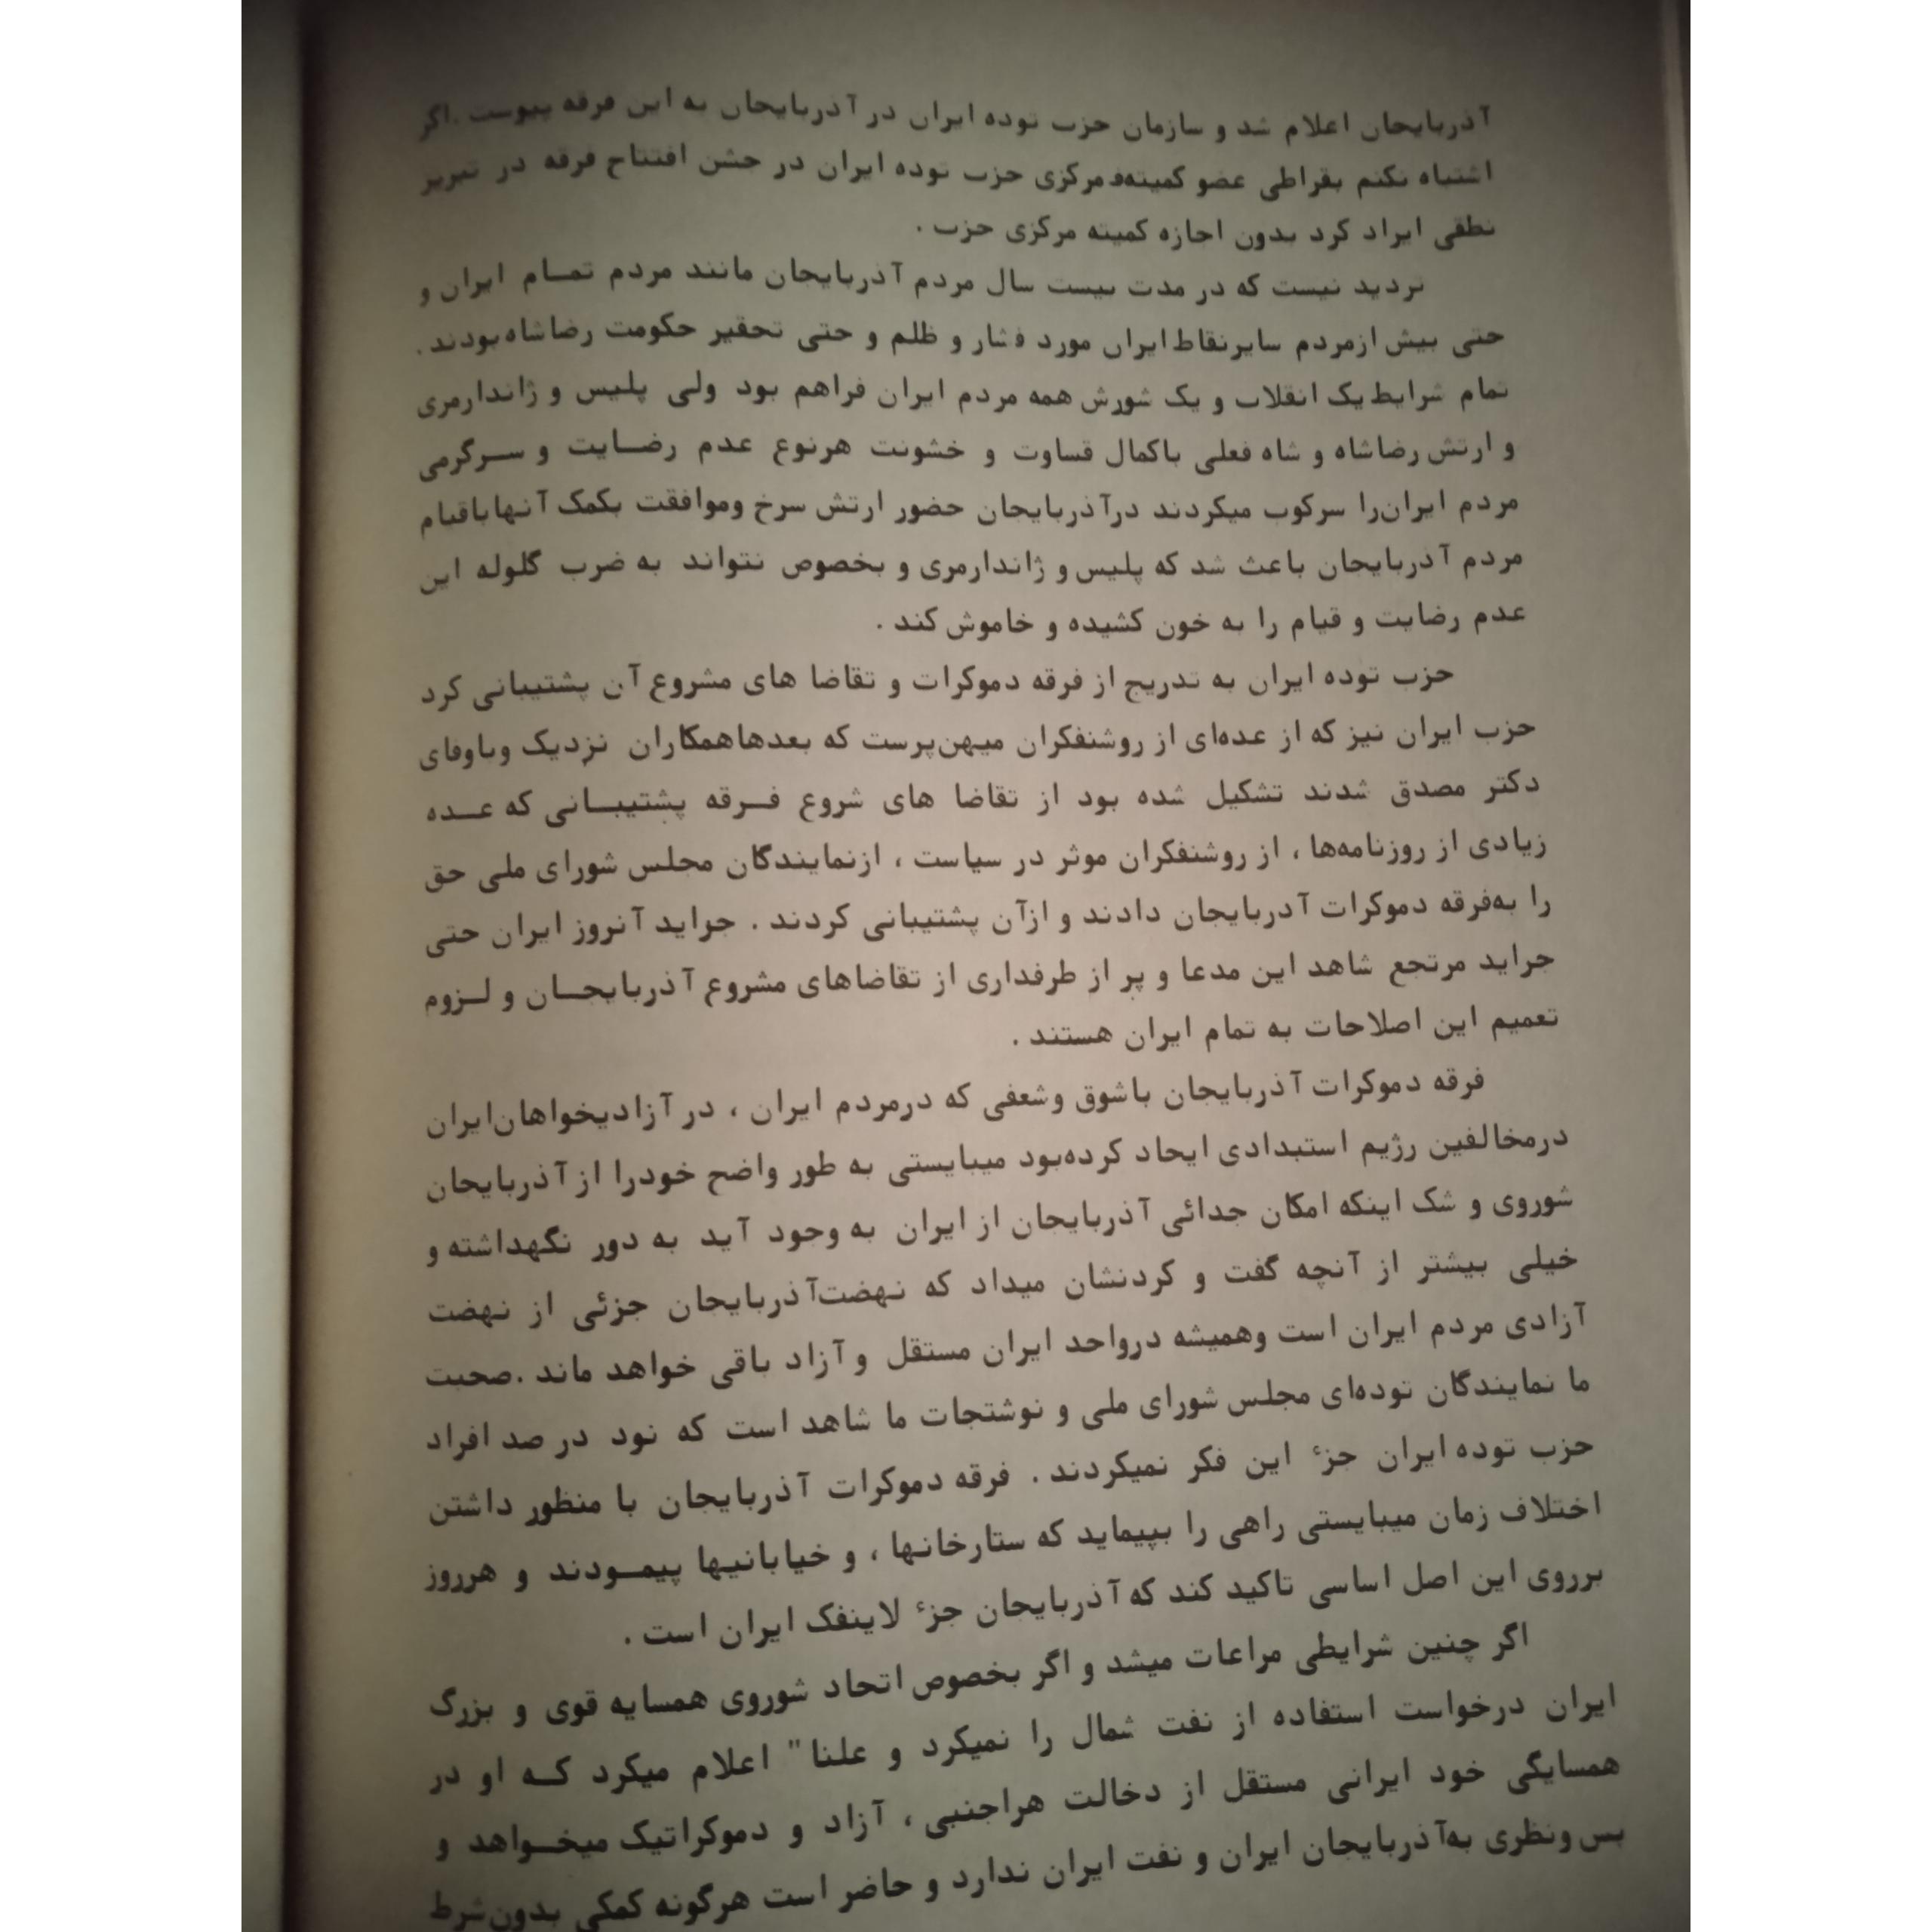 آذربایجان اعلام شد و سازمان حزب توده ایران در آذربایجان به این فرقه پیوست .اگر
اشتباه نکنم بقراطی عضو کمیته مرکزی حزب توده ایران در جشن افتتاح فرقه در تبریز
نطقی ایراد کرد بدون اجازه کمیته مرکزی حزب .
تردید نیست که در مدت بیست سال مردم آذربایجان مانند مردم تمــام ایران و
حتی بیش ازمردم سایرنقاط ایران مورد فشار و ظلم و حتی تحقیر حکومت رضاشاه بودند .
تمام شرایط یک انقلاب و یک شورش همه مردم ایران فراهم بود ولی پلیس و ژاندارمری
و ارتش رضاشاه و شاه فعلی باکمال قساوت و خشونت هرنوع عدم رضــایت و ســرگرمی
مردم ایران‌را سرکوب میکردند درآذربایجان حضور ارتش سرخ وموافقت بکمک آنها باقیام
مردم آذربایجان باعث شد که پلیس و ژاندارمری و بخصوص نتواند به ضرب گلوله این
عدم رضایت و قیام را به خون کشیده و خاموش کند .
حزب توده ایران به تدریج از فرقه دموکرات و تقاضا های مشروع آن پشتیبانی کرد
حزب ایران نیز که از عده‌ای از روشنفکران میهن‌پرست که بعدهاهمکاران نزدیک وباوفای
دکتر مصدق شدند تشکیل شده بود از تقاضا های شروع فــرقه پشتیبــانی که عــده
زیادی از روزنامه‌ها ، از روشنفکران موثر در سیاست ، ازنمایندگان مجلس شورای ملی حق
را به‌فرقه دموکرات آدربایجان دادند و ازآن پشتیبانی کردند . جراید آنروز ایران حتی
جراید مرتجع شاهد این مدعا و پر از طرفداری از تقاضاهای مشروع آذربایجــان و لــزوم
تعمیم این اصلاحات به تمام ایران هستند .
فرقه دموکرات آذربایجان باشوق وشعفی که درمردم ایران ، در آزادیخواهان‌ایران
درمخالفین رژیم استبدادی ایجاد کرده‌بود میبایستی به طور واضح خودرا از آذربایجان
شوروی و شک اینکه امکان جدائی آذربایجان از ایران به وجود آید به دور نگهداشته و
خیلی بیشتر از آنچه گفت و کردنشان میداد که نهضت‌آذربایجان جزئی از نهضت
آزادی مردم ایران است وهمیشه درواحد ایران مستقل و آزاد باقی خواهد ماند .صحبت
ما نمایندگان توده‌ای مجلس شورای ملی و نوشتجات ما شاهد است که نود در صد افراد
حزب توده ایران جزٔ این فکر نمیکردند . فرقه دموکرات آذربایجان با منظور داشتن
اختلاف زمان میبایستی راهی را بپیماید که ستارخانها ، و خیابانیها پیمــودند و هرروز
برروی این اصل اساسی تاکید کند که آذربایجان جزٔ لاینفک ایران است .
اگر چنین شرایطی مراعات میشد و اگر بخصوص اتحاد شوروی همسایه قوی و بزرگ
ایران درخواست استفاده از نفت شمال را نمیکرد و علنا" اعلام میکرد کــه او در
همسایگی خود ایرانی مستقل از دخالت هراجنبی ، آزاد و دموکراتیک میخــواهد و
بس ونظری به‌آذربایجان ایران و نفت ایران ندارد و حاضر است هرگونه کمکی بدون‌شرط